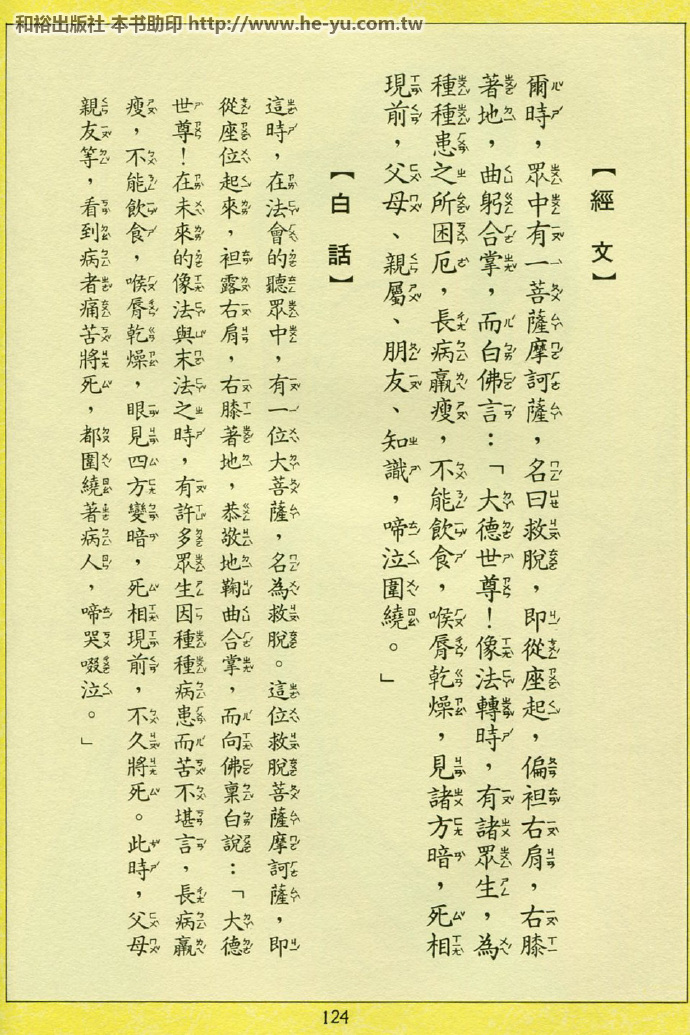 和裕出版社 本书助印 http://www.he-yu.com.tw
【經文】
爾時，眾中有一菩薩摩訶薩，名曰救脫，即從座起，偏袒右肩，右膝
著地，曲躬合掌，而白佛言：「大德世尊！像法轉時，有諸眾生，為
種種患之所困厄，長病羸瘦，不能飲食，喉脣乾燥，見諸方暗，死相
現前，父母、親屬、朋友、知識，啼泣圍繞。」
【白話】
這時，在法會的聽眾中，有一位大菩薩，名為救脫。這位救脫菩薩摩訶薩，即
從座位起來，袒露右肩，右膝著地，恭敬地鞠曲合掌，而向佛稟白說：「大德
世尊！在未來的像法與末法之時，有許多眾生因種種病患而苦不堪言，長病羸
瘦，不能飲食，喉脣乾燥，眼見四方變暗，死相現前，不久將死。此時，父母
親友等，看到病者痛苦將死，都圍繞著病人，啼哭啜泣。」
124